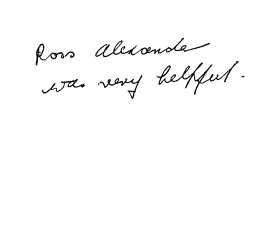 Ross Alexander
was very helpful.